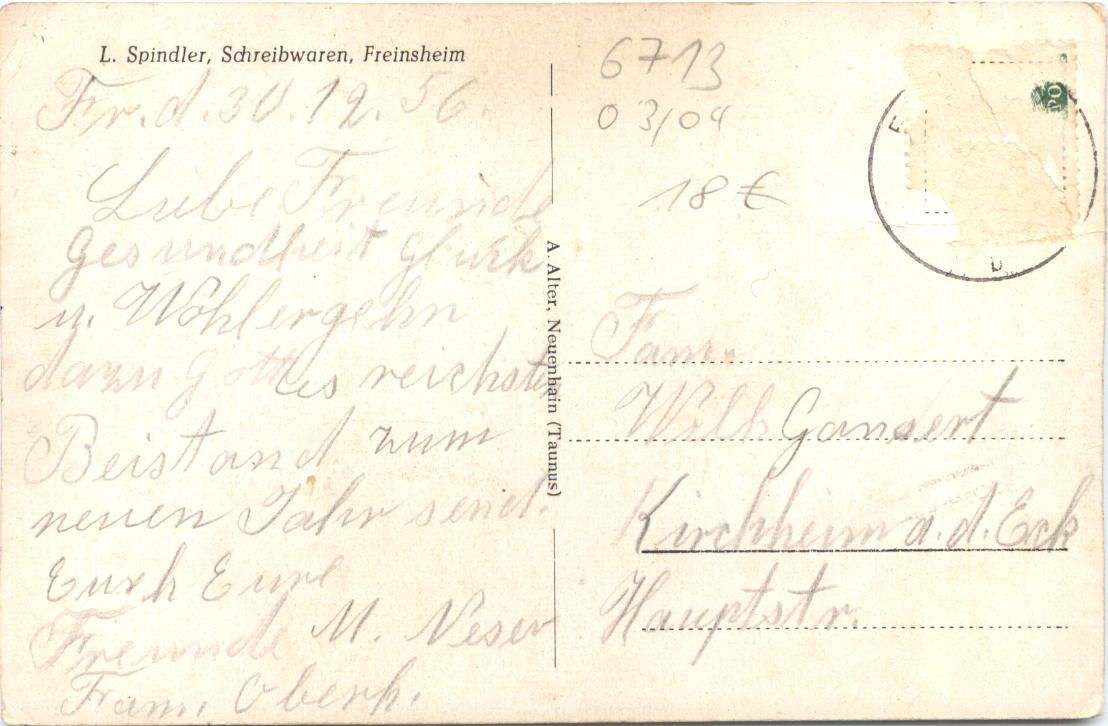 L. Spindler, Schreibwaren, Freinsheim
Fr. d. 30. 12. 56.
Liebe Freunde
Gesundheit Glück
u. Wohlergehn
dazu Gottes reichsten
Beistand zum
neuen Jahr send.
Euch Eure
Freunde M. Neser
Fam. Oberh.
A. Alter, Neuenhain (Taunus)
6713
03/04
18 €
Fam.
Wilh Gansert
Kirchheim a. d. Eck
Hauptstr.